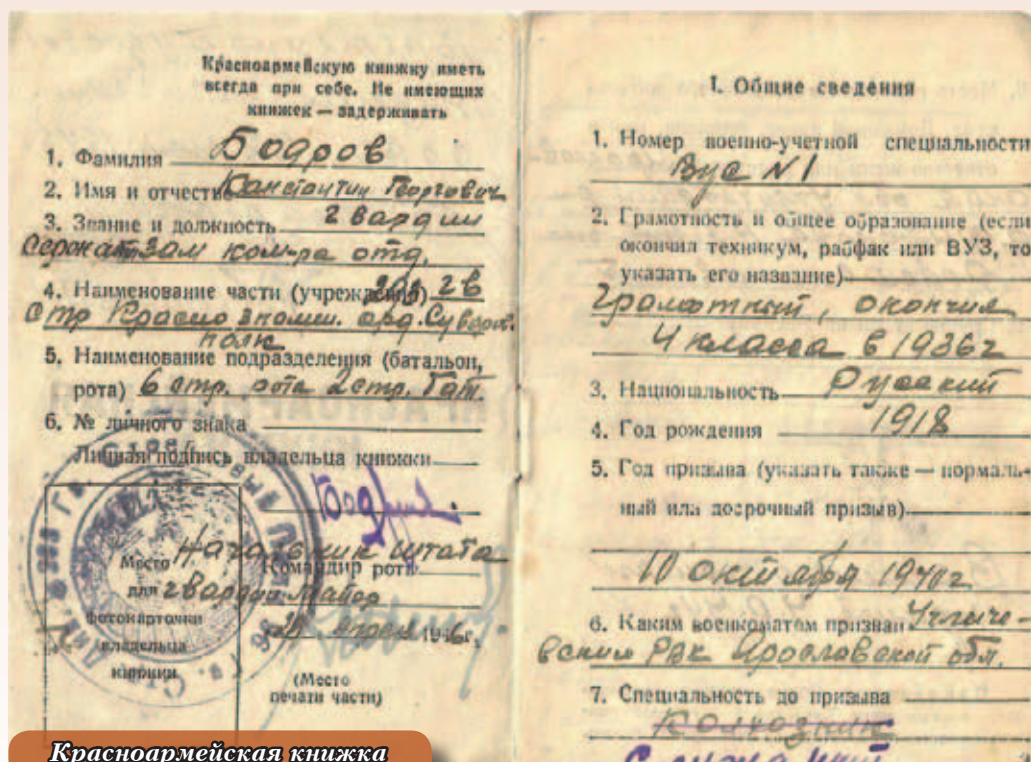 Красноармейскую книжку иметь
всегда при себе. Не имеющих
книжек — задерживать
1. Фамилия Бодров
2. Имя и отчество Константин Георгиевич
3. Звание и должность гвардии
Сержант зам ком-ра отд.
4. Наименование части (учреждения) гв
Стр Краснознамен. орд. Суворов.
полк
5. Наименование подразделения (батальон,
рота) 6 стр. рота 2 стр. бат.
6. № личного знака
Личная подпись владельца книжки
Начальник штаба
Место
Командир роты
для
гвардии майор
фотокарточки
владельца
книжки
1946г.
(Место
печати части)
I. Общие сведения
1. Номер военно-учетной специальности
Вус N 1
2. Грамотность и общее образование (если
окончил техникум, рабфак или ВУЗ, то
указать его название)
Грамотный, окончил
4 класса в 1936г
3. Национальность Русский
4. Год рождения 1918
5. Год призыва (указать также — нормаль-
ный или досрочный призыв)
10 октября 1940г
6. Каким военкоматом призван Угличе-
вским РВК Ярославской обл.
7. Специальность до призыва
Колхозник
Красноармейская книжка